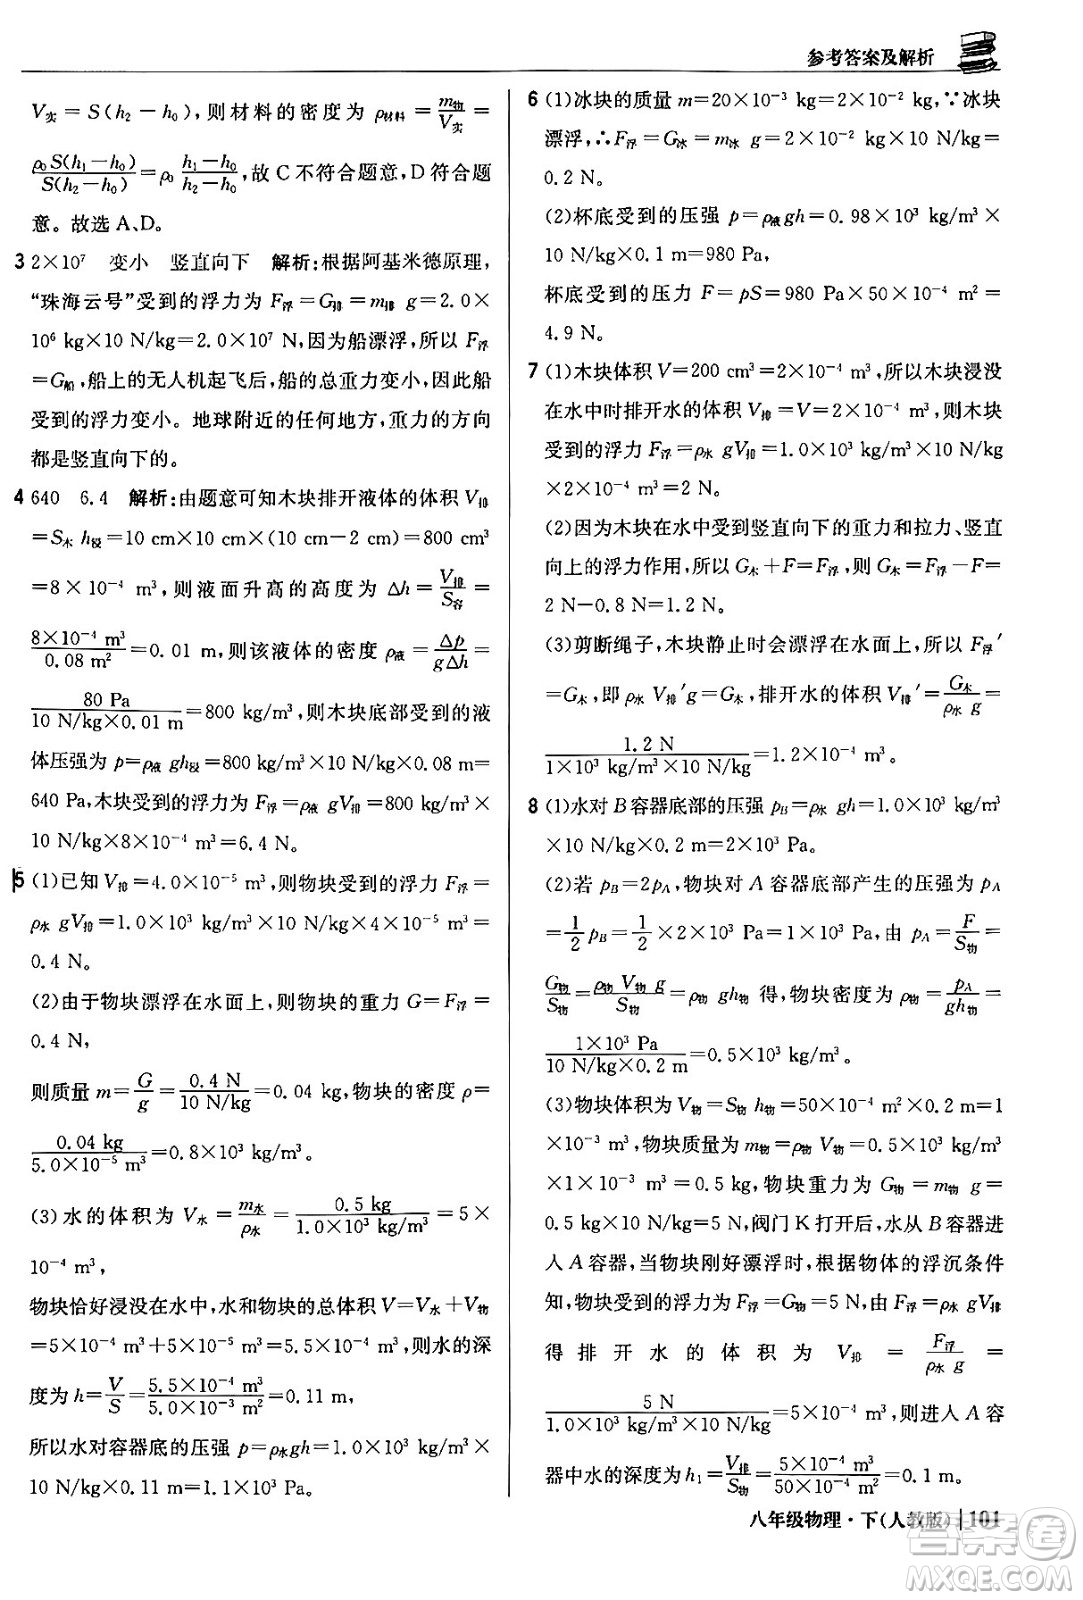 参考答案及解析
V实 = S(h₂－h₀),则材料的密度为 ρ材料 = m物/V实 =
ρ₀S(h₁－h₀)/S(h₂－h₀) = ρ₀ (h₁－h₀)/(h₂－h₀),故 C 不符合题意,D 符合题
意。故选 A、D。
3 2×10⁷ 变小 竖直向下 解析:根据阿基米德原理,
“珠海云号”受到的浮力为 F浮=G排=m排 g=2.0×
10⁶ kg×10 N/kg=2.0×10⁷ N,因为船漂浮,所以 F浮
=G船,船上的无人机起飞后,船的总重力变小,因此船
受到的浮力变小。地球附近的任何地方,重力的方向
都是竖直向下的。
4 640 6.4 解析:由题意可知木块排开液体的体积 V排
=S木 h浸=10 cm×10 cm×(10 cm－2 cm)=800 cm³
=8×10⁻⁴ m³,则液面升高的高度为 Δh = V排/S容 =
8×10⁻⁴ m³/0.08 m² = 0.01 m,则该液体的密度 ρ液 = Δp/gΔh =
80 Pa/10 N/kg×0.01 m = 800 kg/m³,则木块底部受到的液
体压强为 p=ρ液 gh浸=800 kg/m³×10 N/kg×0.08 m=
640 Pa,木块受到的浮力 F浮=ρ液 gV排=800 kg/m³×
10 N/kg×8×10⁻⁴ m³=6.4 N。
5 (1)已知 V排=4.0×10⁻⁵ m³,则物块受到的浮力 F浮=
ρ水 gV排=1.0×10³ kg/m³×10 N/kg×4×10⁻⁵ m³=
0.4 N。
(2)由于物块漂浮在水面上,则物块的重力 G=F浮=
0.4 N,
则质量 m = G/g = 0.4 N/10 N/kg = 0.04 kg,物块的密度 ρ=
0.04 kg/5.0×10⁻⁵ m³ = 0.8×10³ kg/m³。
(3)水的体积为 V水 = m水/ρ水 = 0.5 kg/1.0×10³ kg/m³ = 5×
10⁻⁴ m³,
物块恰好浸没在水中,水和物块的总体积 V=V水+V物
=5×10⁻⁴ m³+5×10⁻⁵ m³=5.5×10⁻⁴ m³,则水的深
度为 h = V/S = 5.5×10⁻⁴ m³/5.0×10⁻³ m² = 0.11 m,
所以水对容器底的压强 p=ρ水gh=1.0×10³ kg/m³×
10 N/kg×0.11 m=1.1×10³ Pa。
6 (1)冰块的质量 m=20×10⁻³ kg=2×10⁻² kg,∵冰块
漂浮,∴F浮=G冰=m冰 g=2×10⁻² kg×10 N/kg=
0.2 N。
(2)杯底受到的压强 p=ρ液 gh=0.98×10³ kg/m³×
10 N/kg×0.1 m=980 Pa,
杯底受到的压力 F=pS=980 Pa×50×10⁻⁴ m²=
4.9 N。
7 (1)木块体积 V=200 cm³=2×10⁻⁴ m³,所以木块浸没
在水中时排开水的体积 V排=V=2×10⁻⁴ m³,则木块
受到的浮力 F浮=ρ水 gV排=1.0×10³ kg/m³×10 N/kg
×2×10⁻⁴ m³=2 N。
(2)因为木块在水中受到竖直向下的重力和拉力、竖直
向上的浮力作用,所以 G木+F=F浮,则 G木=F浮－F=
2 N－0.8 N=1.2 N。
(3)剪断绳子,木块静止时会漂浮在水面上,所以 F浮′
=G木,即 ρ水 V排′g=G木,排开水的体积 V排′ = G木/ρ水 g =
1.2 N/1×10³ kg/m³×10 N/kg = 1.2×10⁻⁴ m³。
8 (1)水对 B 容器底部的压强 pB=ρ水 gh=1.0×10³ kg/m³
×10 N/kg×0.2 m=2×10³ Pa。
(2)若 pB=2pA,物块对 A 容器底部产生的压强为 pA
= 1/2 pB = 1/2×2×10³ Pa=1×10³ Pa,由 pA = F/S物 =
G物/S物 = ρ物 V物 g/S物 = ρ物 gh物 得,物块密度为 ρ物 = pA/gh物 =
1×10³ Pa/10 N/kg×0.2 m = 0.5×10³ kg/m³。
(3)物块体积为 V物=S物 h物=50×10⁻⁴ m²×0.2 m=1
×10⁻³ m³,物块质量为 m物=ρ物 V物=0.5×10³ kg/m³
×1×10⁻³ m³=0.5 kg,物块重力为 G物=m物 g=
0.5 kg×10 N/kg=5 N,阀门 K 打开后,水从 B 容器进
入 A 容器,当物块刚好漂浮时,根据物体的浮沉条件
知,物块受到的浮力为 F浮=G物=5 N,由 F浮=ρ水 gV排
得排开水的体积为 V排 = F浮/ρ水 g =
5 N/1.0×10³ kg/m³×10 N/kg = 5×10⁻⁴ m³,则进入 A 容
器中水的深度为 h₁ = V排/S物 = 5×10⁻⁴ m³/50×10⁻⁴ m² = 0.1 m。
八年级物理·下(人教版) 101
答案圈
MXQE.COM